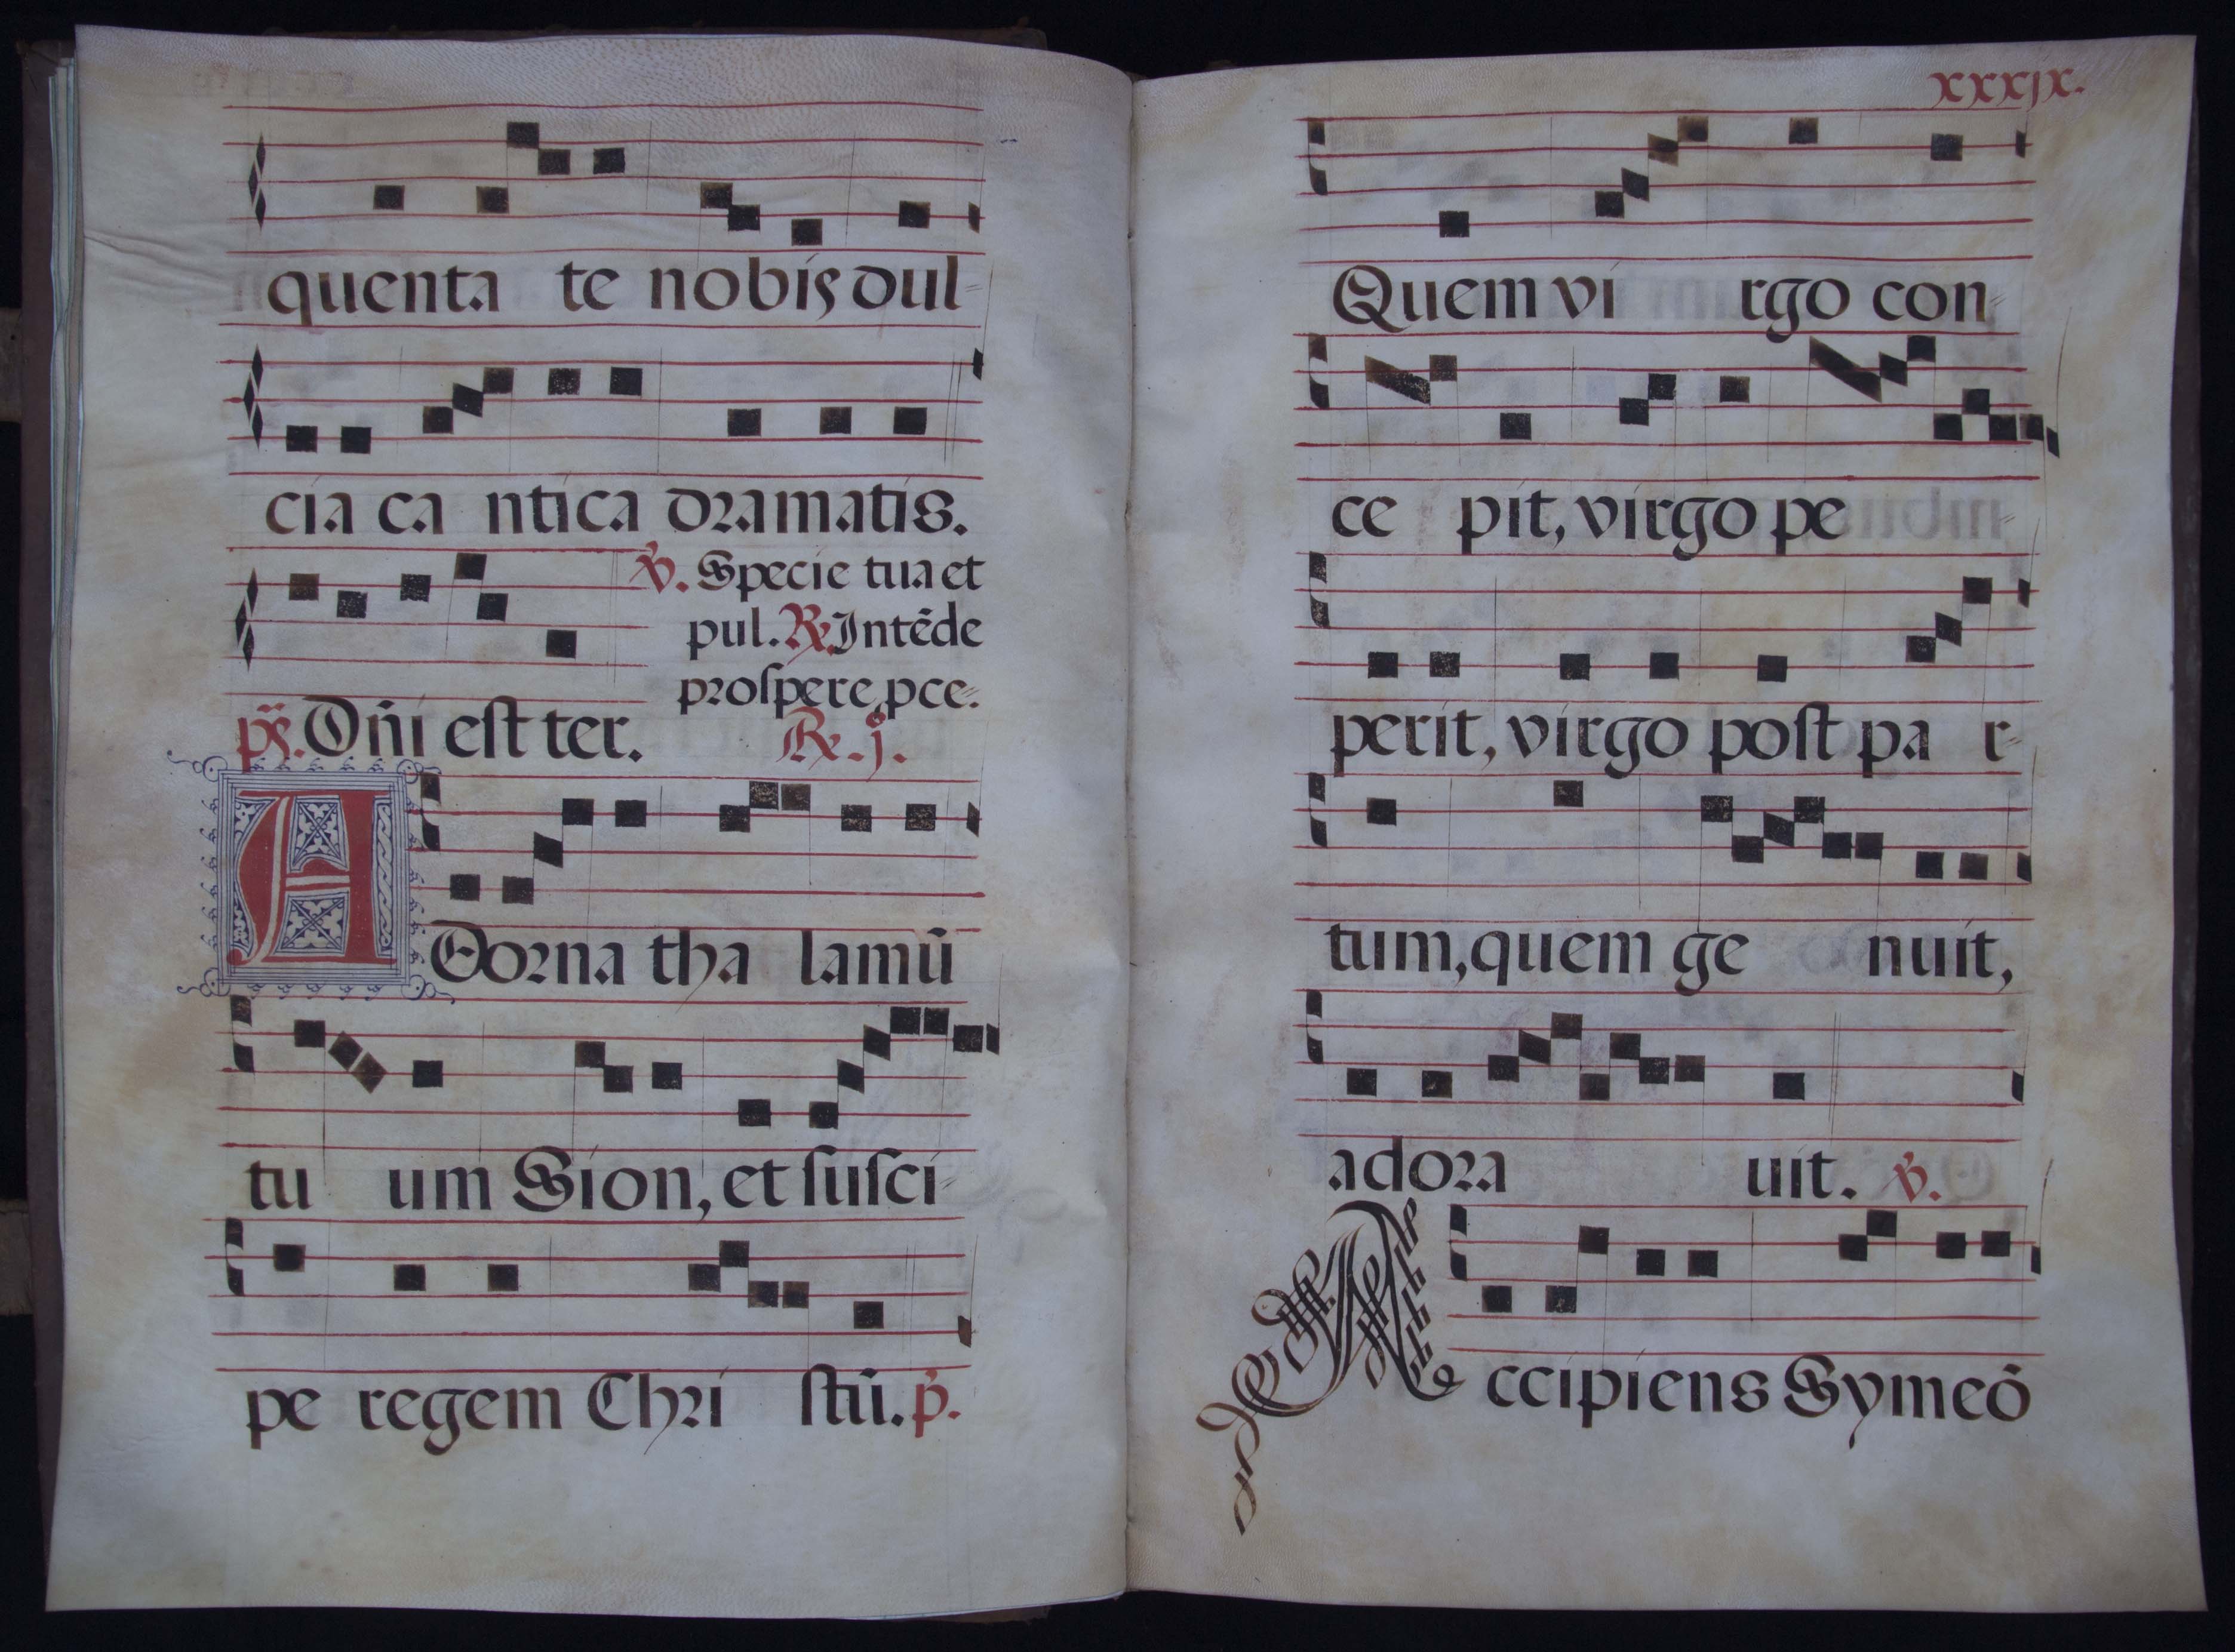 quenta te nobis dul=
cia ca ntica dramatis.
℣. Specie tua et
pul. ℟ Intēde
prospere, pce=
ps. Dñi est ter. ℟. j.
ADorna tha lamū
tu um Sion, et susci-
pe regem Chri stū. p̄.
xxxix.
Quem vi rgo con=
ce pit, virgo pe
perit, virgo post pa r-
tum, quem ge nuit,
adora uit. ℣.
Accipiens Symeō